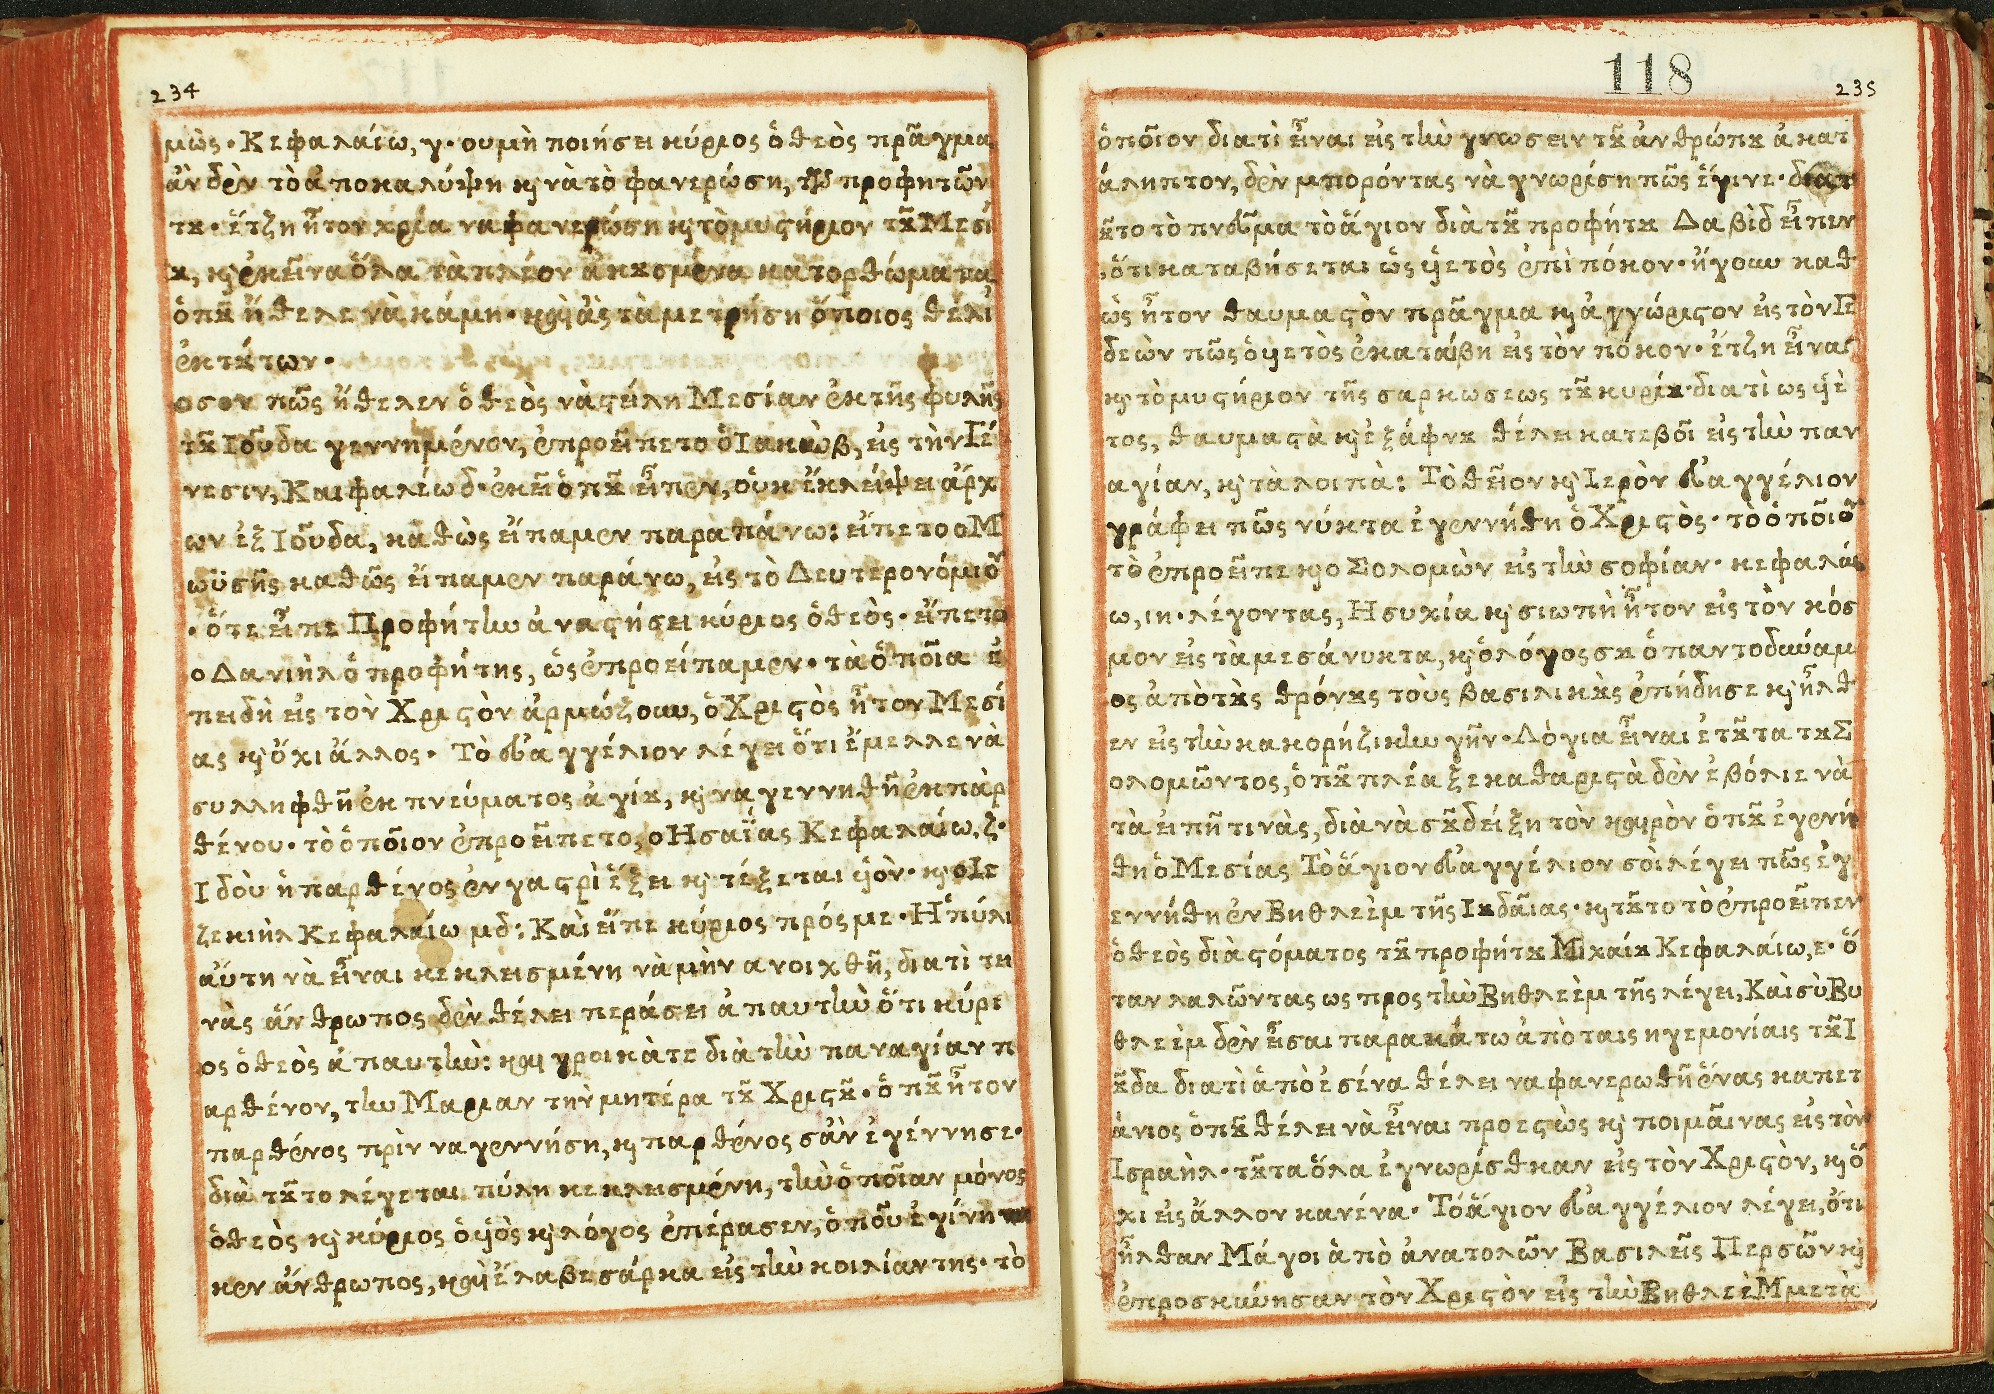 234
μὼς· Κεφαλαίω, γ· ουμὴ ποιήσει κύριος ὁ θεὸς πρᾶγμα
ἀν δὲν τὸ ἀποκαλύψη κ̀ νὰ τὸ φανερώση, τῶν προφητῶν
τȣ· ἔτζη ἦτον χρία να φανερώση κ̀ τὸ μυϛήριον τȣ͂ Μεσί
ȣ, κ̀ ἐκεῖνα ὅλα τὰ πλέον ἀκȣσμένα κατορθώματα,
ὁπȣ͂ ἤθελε νὰ κάμη· καὶ ἀς τὰ μετρήση ὅποιος θέλι
ἐκ τȣ́των·
οσον πῶς ἤθελεν ὁ θεὸς νὰ ϛείλη Μεσίαν ἐκ τῆς φυλῆς
τȣ͂ Ιοῦδα γεννημένον, ἐπροεῖπε το ὁ Ιακὼβ, εἰς τὴν Γέ
νεσιν, Καιφαλέω δ· ἐκεῖ ὁπȣ͂ εἶπεν, οὐκ ἐκλείψει ἄρχ
ων ἐξ Ιοῦδα, καθὼς εἴπαμεν παραπάνω: εἴπε το ο Μ
ωϋσῆς καθῶς εἴπαμεν παράνω, εἰς τὸ Δευτερονόμιο
· ὅτε εἶπε Προφήτην ἀναϛήσει κύριος ὁ θεὸς· εἴπε το
ο Δανιὴλ ὁ προφήτης, ὡς ἐπροείπαμεν· τὰ ὁποῖα ἐ
πειδὴ εἰς τὸν Χριϛὸν ἁρμώζουν, ὁ Χριϛὸς ἦτον Μεσί
ας κ̀ ὄχι ἄλλος· Τὸ εὐαγγέλιον λέγει ὅτι ἔμελλε νὰ
συλληφθῆ ἐκ πνεύματος ἁγίȣ, κ̀ να γεννηθῆ ἐκ πὰρ
θένου· τὸ ὁποῖον ἐπροεῖπε το, ο Ησαΐας Κεφαλαίω, ζ·
Ιδοὺ ἡ παρθένος ἐν γαϛρὶ ἕξει κ̀ τέξεται ὑὸν· κ̀ ο Ιε
ζεκιὴλ Κεφαλαίω μδ: Καὶ εἴπε κύριος πρός με· Η πύλι
αὕτη νὰ εἶναι κεκλεισμένη νὰ μὴν ανοιχθῆ, διατὶ τη
νὰς ἄνθρωπος δὲν θέλει περάσει ἀπαυτὴν ὅτι κύρι
ος ὁ θεὸς ἀπαυτὴν: καὶ γροικάτε διὰ τὴν παναγίαν π
αρθένον, την Μαριαν τὴν μητέρα τȣ͂ Χριϛȣ͂· ὁπȣ͂ ἦτον
παρθένος πρὶν να γεννήση, κ̀ παρθένος σἂν ἐγέννησε·
διὰ τȣ͂το λέγεται πύλη κεκλεισμένη, τὴν ὁποῖαν μόνος
ὁ θεὸς κ̀ κύριος ὁ ὑὸς κ̀ λόγος ἐπέρασεν, ὁποῦ ἐγίνη
κεν ἄνθρωπος, καὶ ἔλαβε σάρκα εἰς τὴν κοιλίαν της· τὸ
118
235
ὁποῖον διατὶ εἶναι εἰς τὴν γνωσειν τȣ͂ ἀνθρώπȣ ἀκατ
άληπτον, δὲν μπορόντας νὰ γνωρίση πῶς ἔγινε· διατ
ȣ͂το τὸ πνεῦμα τὸ ἅγιον διὰ τȣ͂ προφήτȣ Δαβὶδ εἶπεν
, ὅτι καταβήσεται ὡς ὑετὸς ἐπὶ πόκον· ἤγουν καθ
ὼς ἦτον θαυμαϛὸν πρᾶγμα κ̀ ἀγνώριϛον εἰς τὸν Γε
δεὼν πῶς ὁ ὑετὸς ἐκαταίβη εἰς τὸν πόκον· ἔτζη εἶναι
κ̀ τὸ μυϛήριον τῆς σαρκωσεως τȣ͂ κυρίȣ· διατὶ ως ὑὲ
τος, θαυμαϛὰ κ̀ ἐξάφνȣ θέλει κατεβοῖ εἰς τὴν παν
αγίαν, κ̀ τὰ λοιπὰ: Τὸ θεῖον κ̀ Ιερὸν εὐαγγέλιον
γράφει πῶς νύκτα ἐγεννήθη ὁ Χριϛὸς· τὸ ὁποῖο
τὸ ἐπροεῖπε κ̀ ο Σολομὼν εἰς τὴν σοφίαν· κεφαλαί
ω, ιη· λέγοντας, Ησυχία κ̀ σιωπὴ ἦτον εἰς τὸν κόσ
μον εἰς τὰ μεσάνυκτα, κ̀ ὁ λόγος σȣ ὁ παντοδυνάμ
ος ἀπὸ τȣ̀ς θρόνȣς τοὺς βασιλικȣ̀ς ἐπήδησε κ̀ ἦλθ
εν εἰς τὴν κακορήζικην γῆν· Λόγια εἶναι ετȣ͂τα τȣ Σ
ολομῶντος, ὁπȣ͂ πλέα ξεκαθαριϛὰ δὲν ἐβόλιε νὰ
τὰ ειπῆ τινὰς, διὰ νὰ σȣ͂ δείξη τὸν καιρὸν ὁπȣ͂ ἐγενή
θη ὁ Μεσίας Τὸ ἅγιον εὐαγγέλιον σοὶ λέγει πῶς ἐγ
εννήθη ἐν Βηθλεὲμ τῆς Ιȣδαῖας· κ̀ τȣ͂το τὸ ἐπροεῖπεν
ὁ θεὸς διὰ ϛόματος τȣ͂ προφήτȣ Μιχαίȣ Κεφαλαίω, ε· ὅ
ταν λαλῶντας ως προς τὴν Βηθλεὲμ τῆς λέγει, Καὶ σὺ Βυ
θλεὲμ δὲν εἶσαι παρακάτω ἀπὸ ταις ηγεμονίαις τȣ͂ Ι
ȣ͂δα διατὶ ἀπὸ ἐσένα θέλει να φανερωθῆ ἕνας καπετ
άνιος ὁπȣ͂ θέλει νὰ εἶναι προεϛὼς κ̀ ποιμαῖνας εἰς τὸν
Ισραὴλ· τȣ͂τα ὅλα ἐγνωρίσθηκαν εἰς τὸν Χριϛὸν, κ̀ ὄ
χι εἰς ἄλλον κανένα· Τό ἅγιον εὐαγγέλιον λέγει, ὅτι
ἦλθαν Μάγοι ἀπὸ ἀνατολῶν Βασιλεῖς Περσῶν κ̀
ἐπροσκύνησαν τὸν Χριϛὸν εἰς τὴν Βηθλεὲμ μετὰ